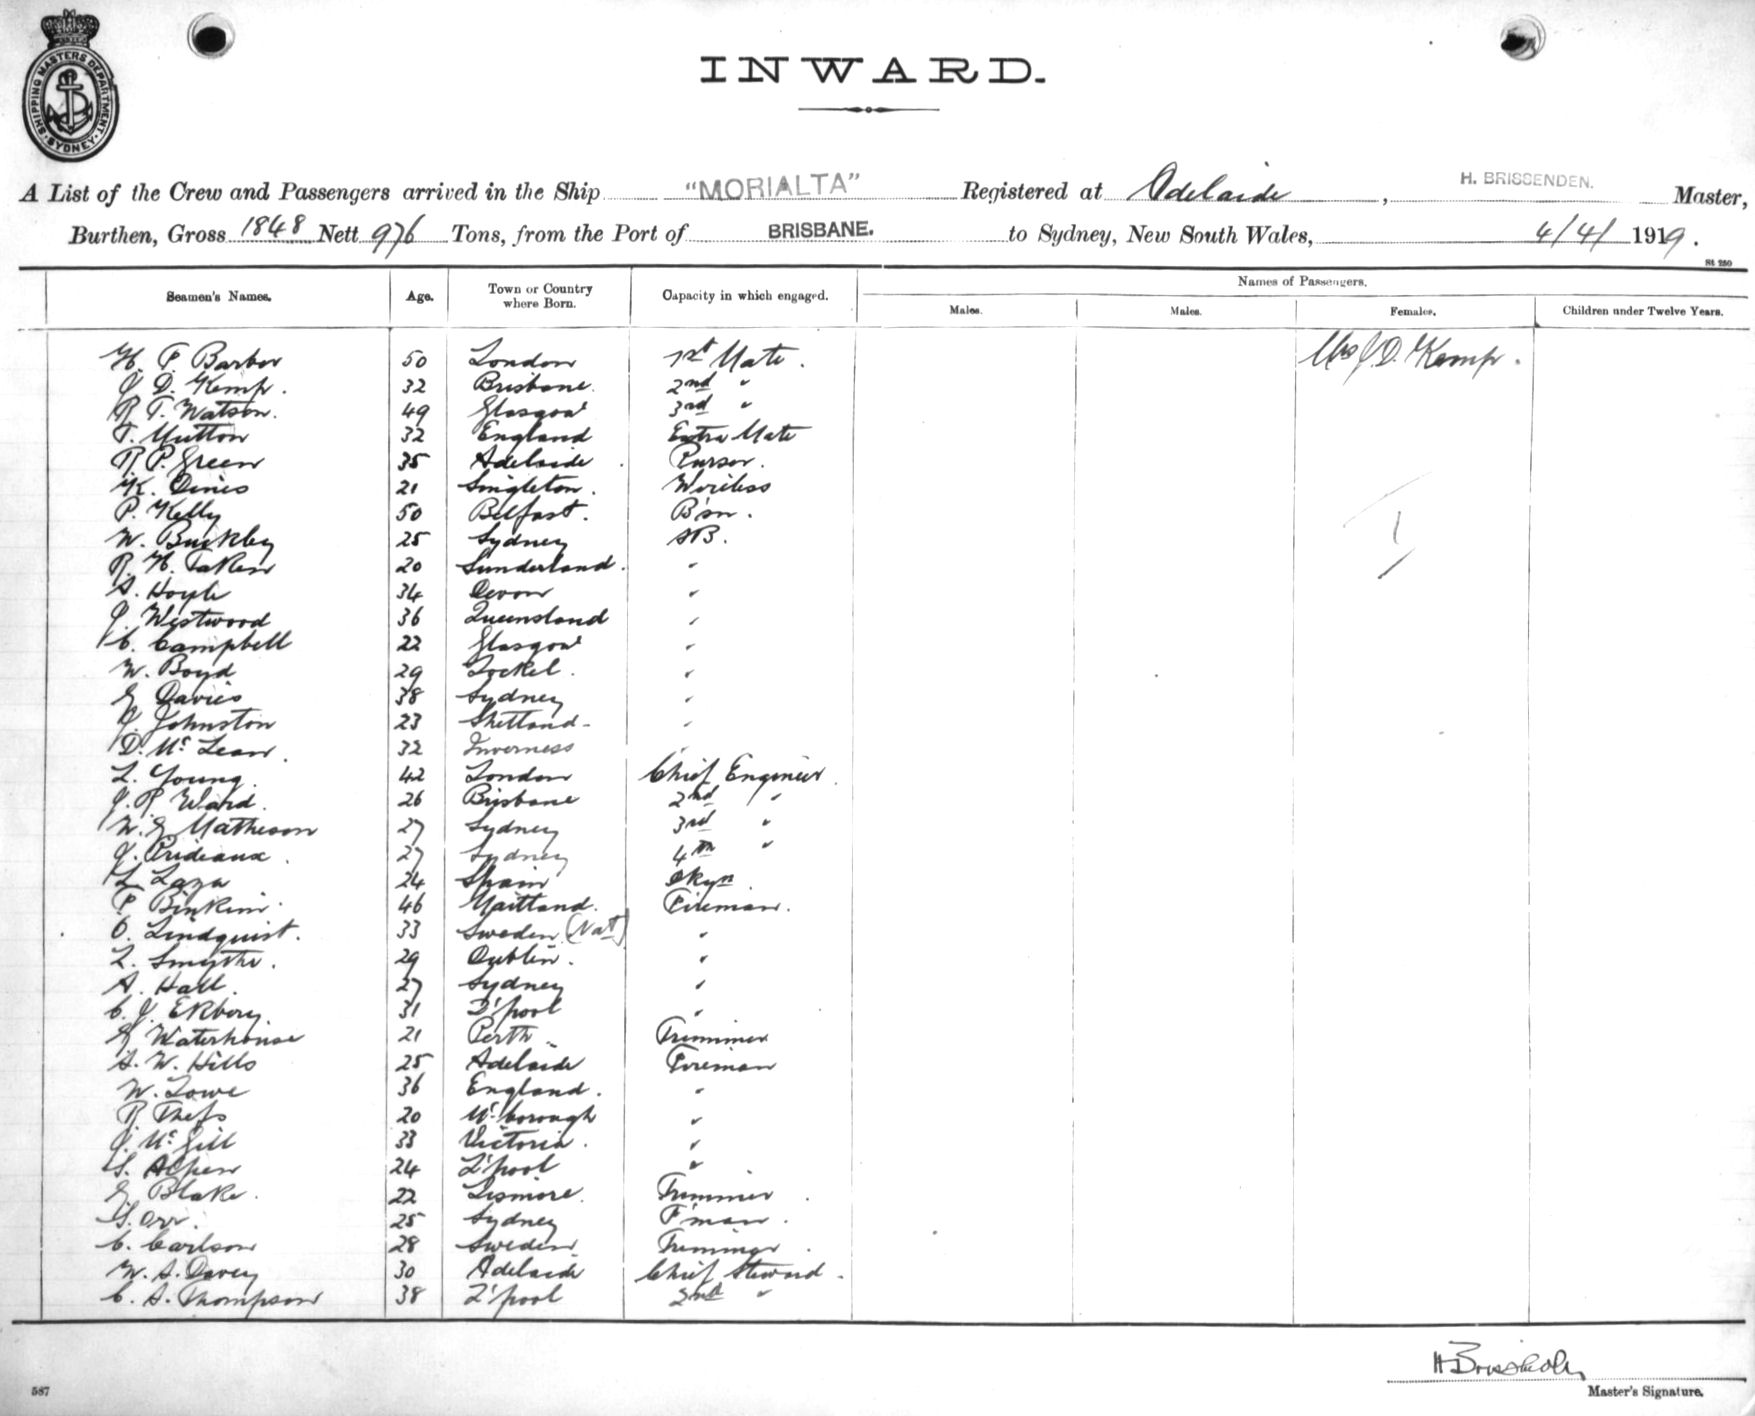 SHIPPING MASTERS DEPARTMENT. SYDNEY.
INWARD.
A List of the Crew and Passengers arrived in the Ship "MORIALTA" Registered at Adelaide, H. BRISSENDEN. Master,
Burthen, Gross 1848 Nett 976 Tons, from the Port of BRISBANE. to Sydney, New South Wales, 4/4/ 1919.
St 250
Names of Passengers.
Seamen's Names. Age. Town or Country where Born. Capacity in which engaged. Males. Males. Females. Children under Twelve Years.
H. P. Barber 50 London 1st Mate. Mrs J. D. Kemp.
J D. Kemp. 32 Brisbane. 2nd "
R T. Watson. 49 Glasgow 3rd "
T. Mutton 32 England Extra Mate
R P. Green 35 Adelaide. Purser.
K. Dines 21 Singleton. Wireless
P. Kelly 50 Belfast. B'sn.
W. Buckley 25 Sydney AB.
R. H. 20 Sunderland. "
A. Hoyle 34 Devon "
J. Westwood 36 Queensland "
C. Campbell 22 Glasgow "
W. Boyd 29 "
E Davies 38 Sydney "
J. Johnston 23 Shetland- "
D. Mc Lean. 32 Inverness "
L. Young. 42 London Chief Engineer.
J. R Ward. 26 Brisbane 2nd "
W. G Matheson 27 Sydney 3rd "
J. Prideaux. 27 Sydney 4th "
24 Spain
P 46 Maitland. Fireman.
O. Lindquist. 33 Sweden (Nat) "
L. Smythe. 29 Dublin. "
A. Hall. 27 Sydney "
C. J. Ekberg. 31 L'pool "
E Waterhouse 21 Perth. Trimmer
A. W. Hills 25 Adelaide Fireman
W. Lowe 36 England. "
R 20 M'borough "
J. Mc Gill 33 Victoria. "
S. Alpen 24 L'pool "
E Blake. 22 Lismore. Trimmer.
G. Orr. 25 Sydney F'man.
C. Carlson 28 Sweden. Trimmer.
W. A. Davey 30 Adelaide Chief Steward.
C. A. Thompson 38 L'pool 2nd "
Master's Signature.
587